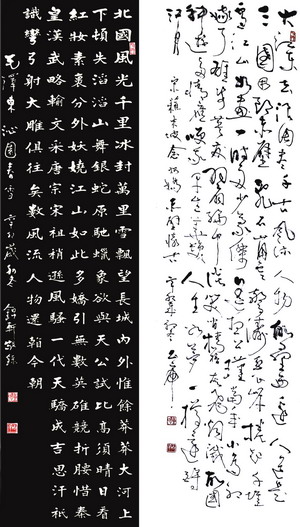 大江東去浪淘盡千古風流人物故壘西邊人道是
三國周郎赤壁亂石崩雲驚濤裂岸捲起千堆
雪江山如畫一時多少豪傑遙想公瑾當年小喬初
嫁了雄姿英發羽扇綸巾談笑間檣櫓灰飛煙滅故國
神遊多情應笑我早生華髮人生如夢一樽還酹
江月 宋蘇東坡念奴嬌赤壁懷古
北國風光千里冰封萬里雪飄望長城內外惟餘莽莽大河上
下頓失滔滔山舞銀蛇原馳蠟象欲與天公試比高須晴日看
紅妝素裹分外妖嬈江山如此多嬌引無數英雄競折腰惜秦
皇漢武略輸文采唐宗宋祖稍遜風騷一代天驕成吉思汗祇
識彎弓射大雕俱往矣數風流人物還看今朝
毛澤東沁園春雪